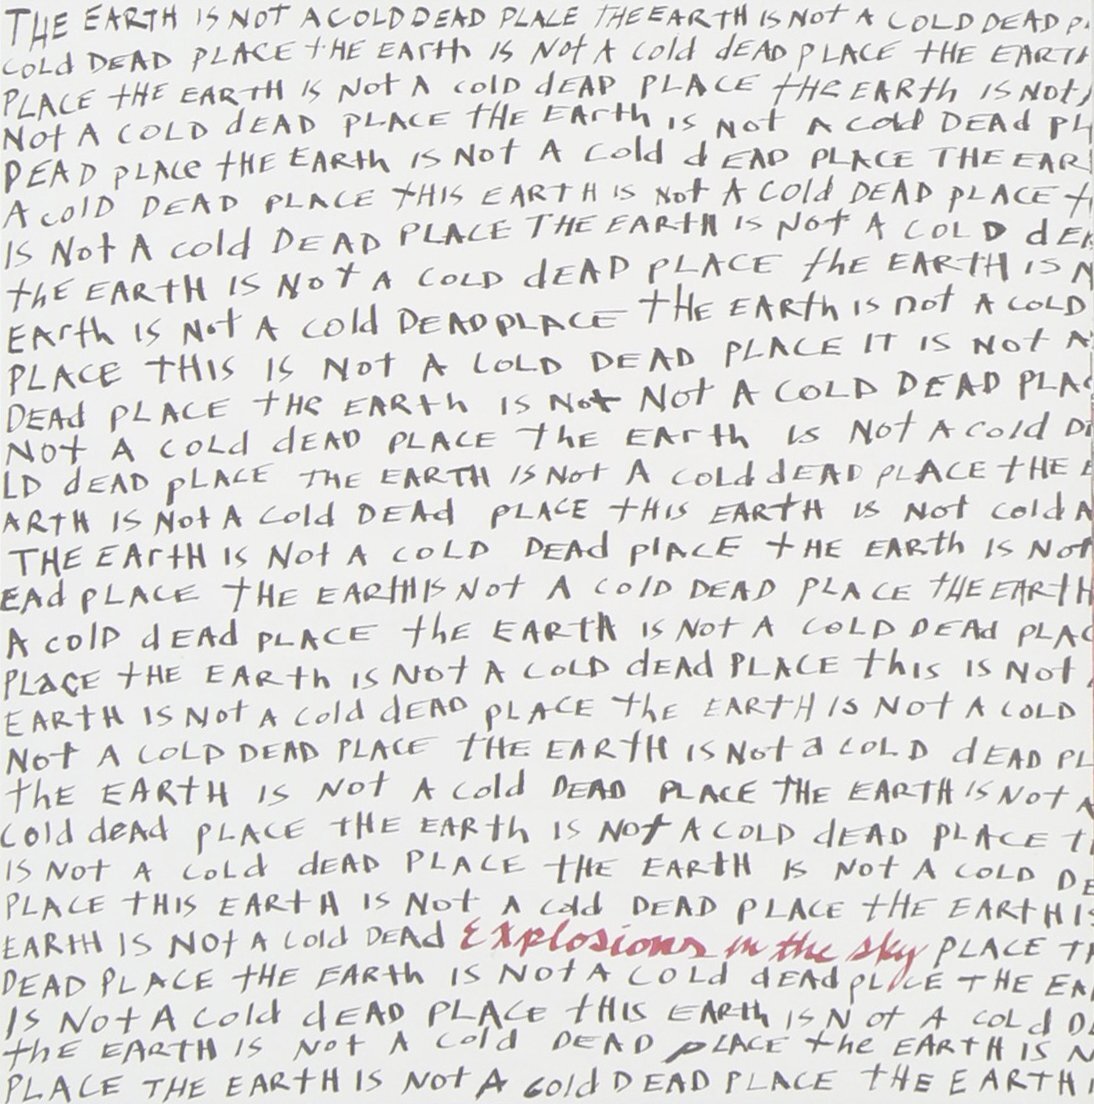 THE EARTH IS NOT A COLD DEAD PLACE THE EARTH IS NOT A COLD DEAD P
COLd DEAD PLACE tHE EARth IS Not A cold dEAD PLACE tHE EARTH
PLACE tHE EARTH IS Not A cold dEAD PLACE tHE EARth IS Not
Not A COLD dEAD PLACE tHE EArth is Not A cold DEAd PL
DEAD pLAce tHE EARth IS Not A Cold dEAD PLACE THE EAR
A colD DEAD PLACE tHIS EARTH IS Not A Cold DEAD pLACE t
IS Not A cold DEAD PLACE THE EARtH IS Not A COLD dEA
thE EARtH IS Not A COLD dEAD pLACE thE EARtH IS N
EArth IS Not A cold DEADpLACE tHE EARth is not A COLD
PLACE tHIS IS Not A COLD DEAD PLACE IT IS Not A
DEAd pLACE tHe EARth IS Not Not A COLD DEAD PLAC
Not A COLd dEAD PLACE the EARth is Not A cold D
LD dEAD pLACE THE EARTH IS Not A COLd dEAD PLACE tHE E
ARTH IS Not A Cold DEAd PLACE tHIS EARtH IS Not cold A
THE EArtH IS Not A COLD DEAd plACE tHE EARth IS Not
EAd pLACE tHE EARtHIS Not A Cold DEAD PLACE tHE EARtH
A colD dEAd pLACE thE EARtH IS Not A COLD DEAd PLAC
PLaCE tHE EARth IS Not A COLD dEAd PLACE this IS Not
EARTH IS Not A Cold dEAD pLACE the EARtH IS Not A COLD
Not A COLD DEAD PLACE tHE EARtH IS Not a COLD dEAD PL
thE EARtH IS Not A Cold DEAD PLACE tHE EARtH IS Not A
Cold deAd PLACE tHE EARth IS Not A COLD dEAD PLACE t
IS Not A COLd dEAD PLACE tHE EARtH IS Not A COLD DE
PLACE tHIS EARtH IS Not A cold DEAD PLACE tHE EARtH IS
EARtH IS Not A Cold DEAD Explosions in the sky PLACE T
DEAD PLACE tHE EARth IS Not A COLD dEAd pLACE tHE EA
IS Not A Cold dEAD PLACE tHIS EARth IS Not A COLd D
thE EARTH IS Not A Cold DEAD pLACE the EARtH IS N
PLACE tHE EARtH IS Not A Cold DEAD PLACE tHE EARTH